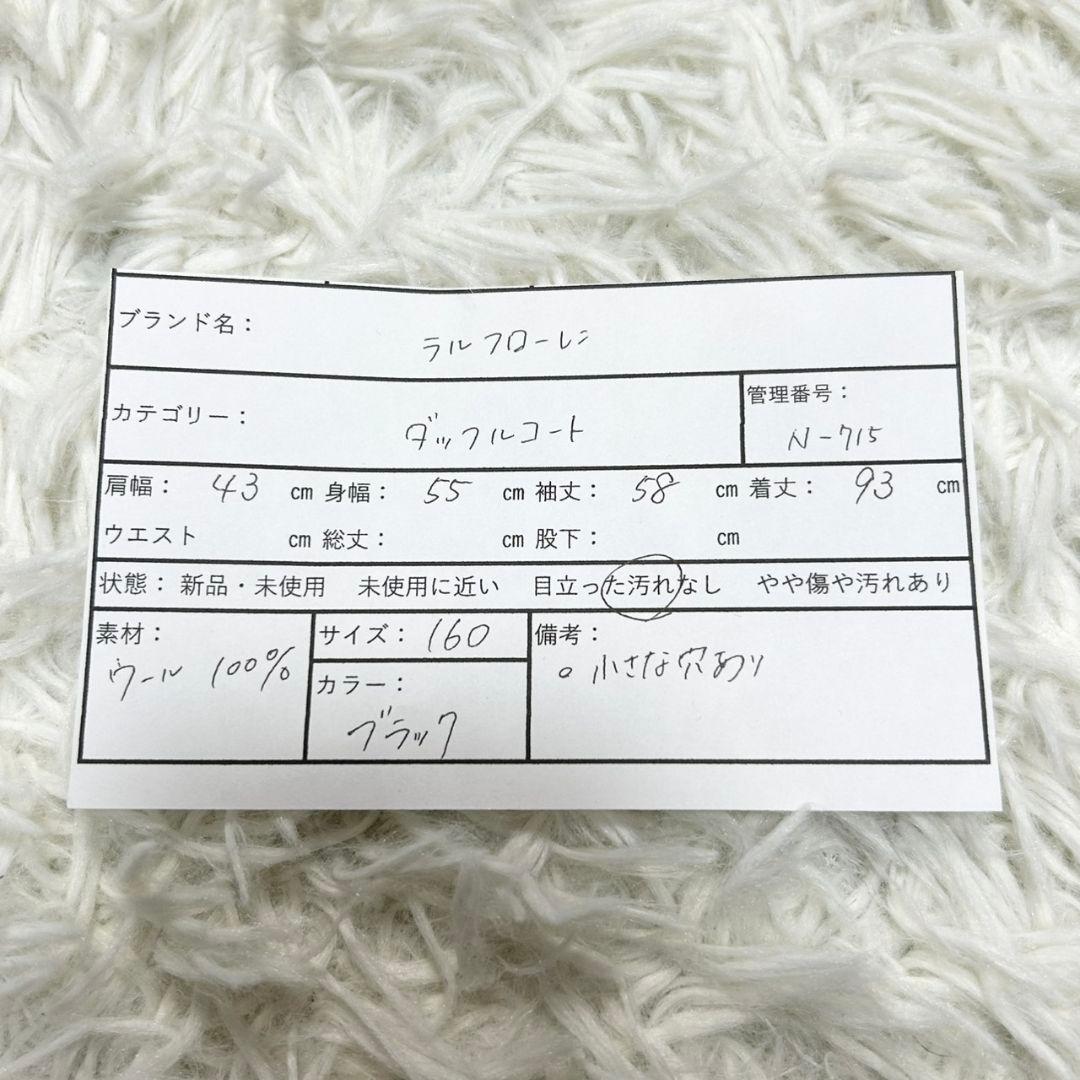 ブランド名： ラルフローレン
カテゴリー： ダッフルコート
管理番号：
N-715
肩幅： 43 cm 身幅： 55 cm 袖丈： 58 cm 着丈： 93 cm
ウエスト cm 総丈： cm 股下： cm
状態： 新品・未使用 未使用に近い 目立った汚れなし やや傷や汚れあり
素材：
ウール 100%
サイズ： 160
カラー：
ブラック
備考：
○ 小さな穴あり